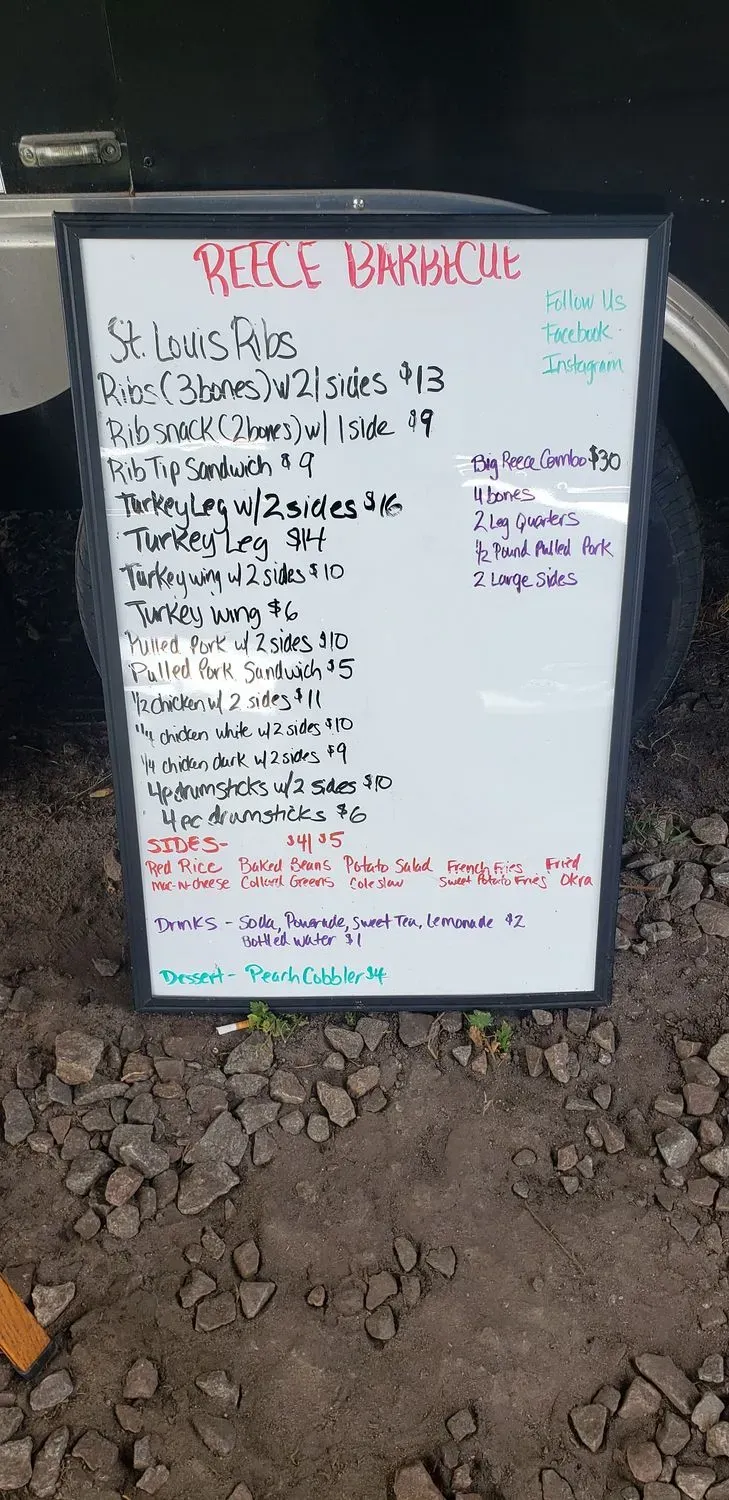 REECE BARBECUE
Follow Us
Facebook
Instagram
St. Louis Ribs
Ribs (3bones) w 2/ sides $13
Rib snack (2bones) w/ 1 side $9
Rib Tip Sandwich $9
Turkey Leg w/2 sides $16
Turkey Leg $14
Turkey wing w/ 2 sides $10
Turkey wing $6
Pulled Pork w/ 2 sides $10
Pulled Pork Sandwich $5
1/2 chicken w/ 2 sides $11
1/4 chicken white w/2 sides $10
1/4 chicken dark w/2 sides $9
4pc drumsticks w/2 sides $10
4 pc drumsticks $6
Big Reece Combo $30
4 bones
2 Leg Quarters
1/2 Pound Pulled Pork
2 Large Sides
SIDES- $4/ $5
Red Rice Baked Beans Potato Salad French Fries Fried
Mac-N-Cheese Collard Greens Coleslaw Sweet Potato Fries Okra
Drinks - Soda, Powerade, Sweet Tea, Lemonade $2
Bottled water $1
Dessert - Peach Cobbler $4